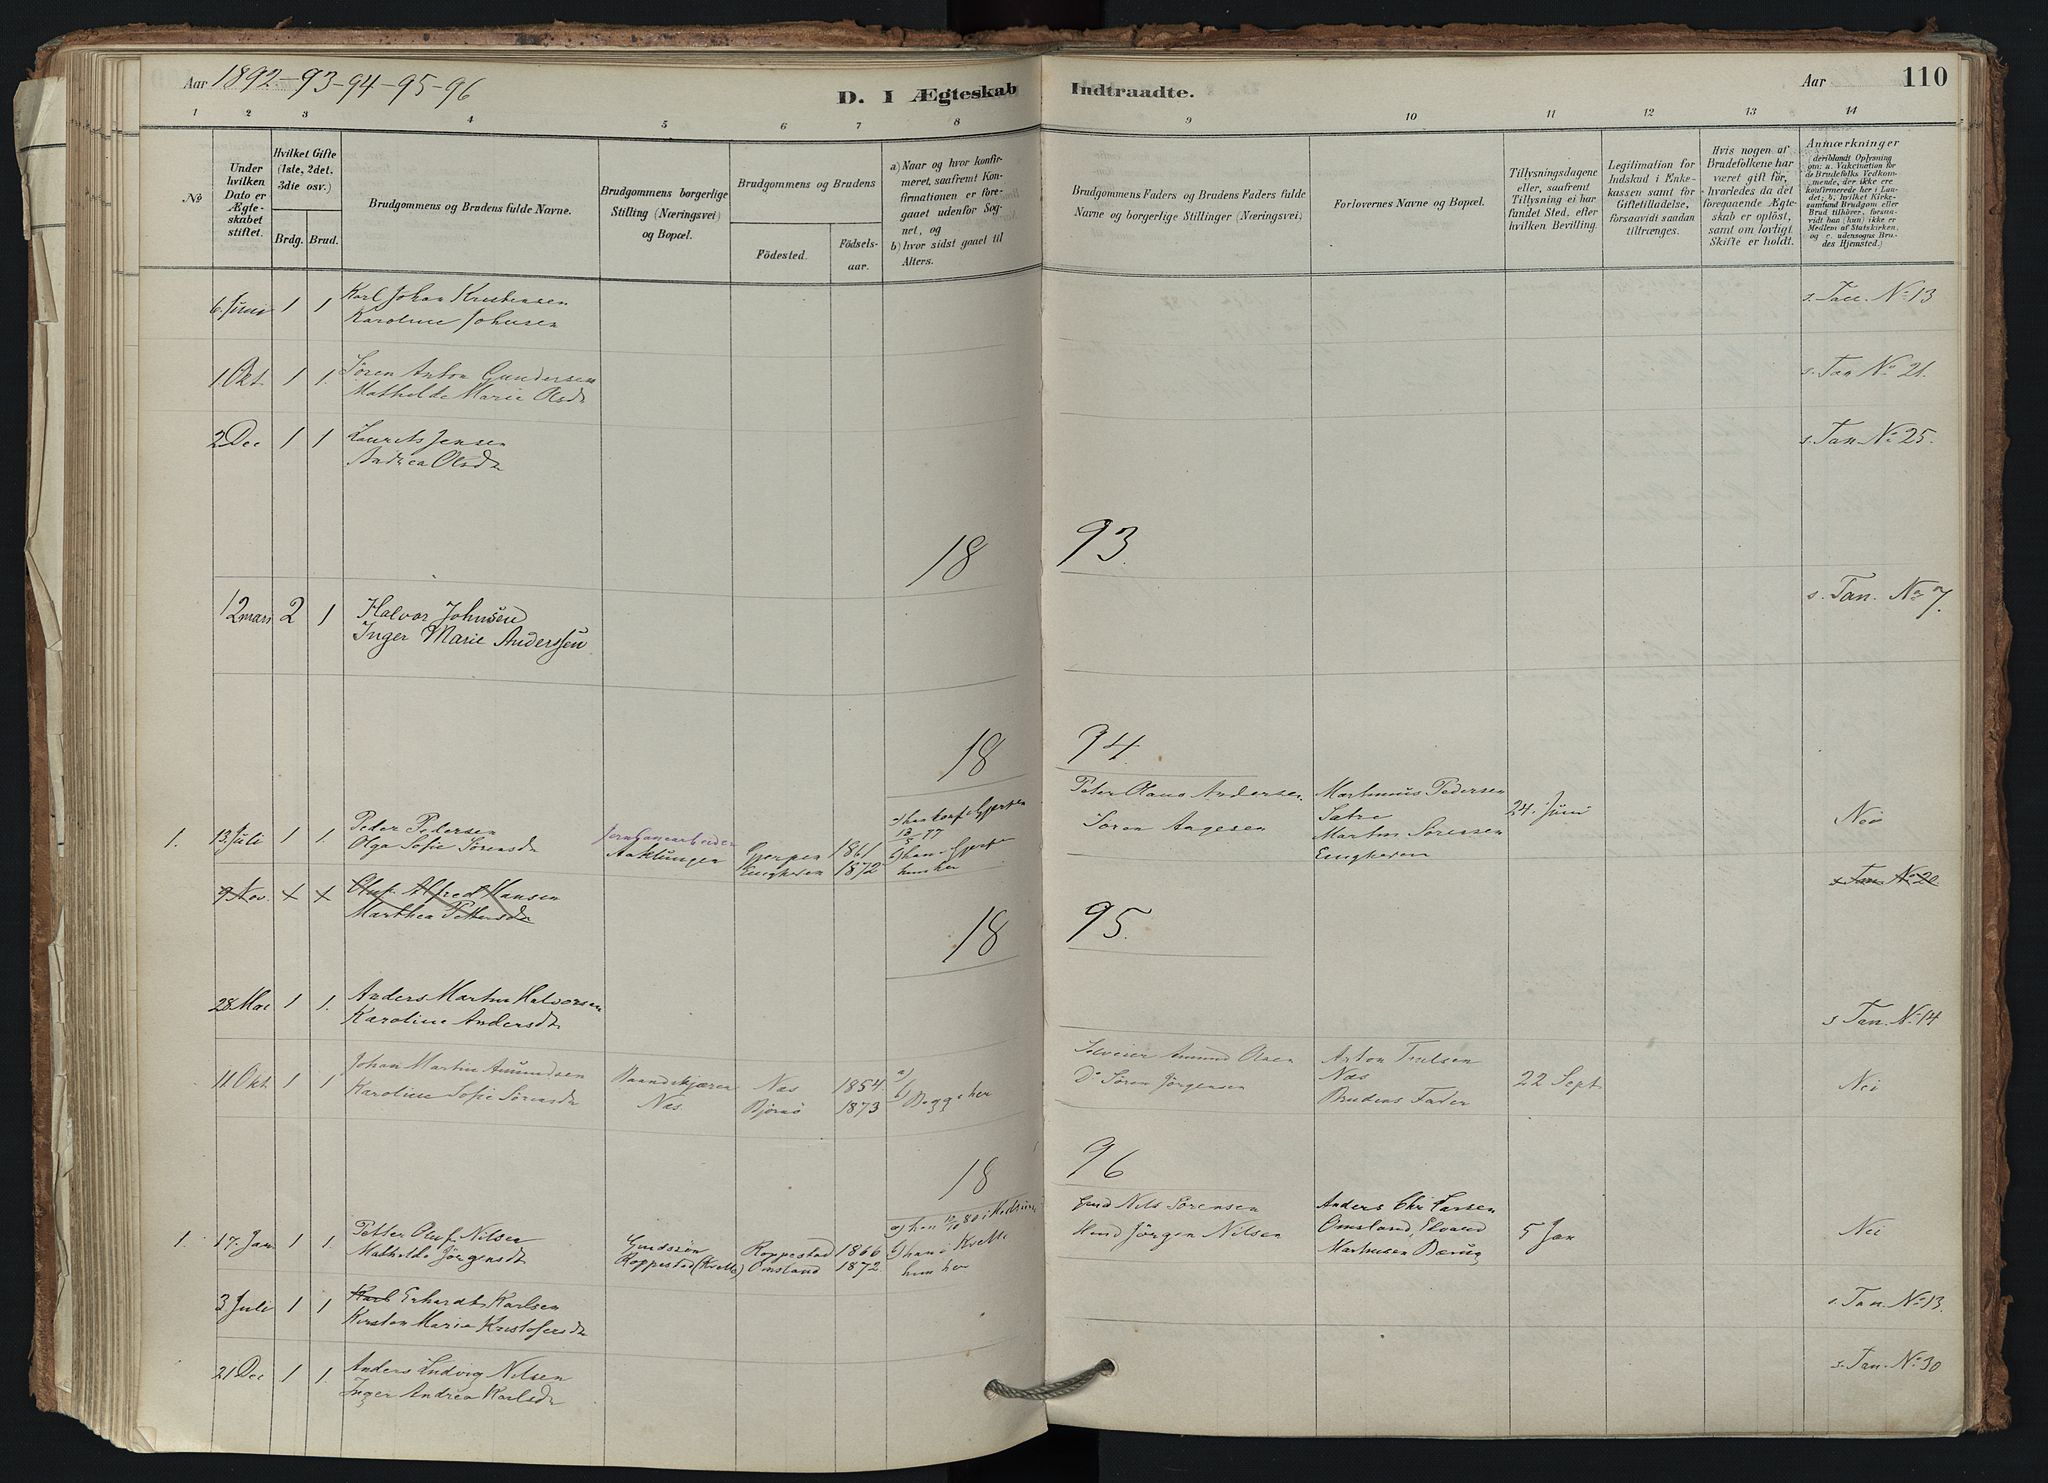 Aar 1892-93-94-95-96
D. I Ægteskab Indtraadte.
Aar
110
1 2 3 4 5 6 7 8 9 10 11 12 13 14
No
Under hvilken Dato er Ægteskabet stiftet.
Hvilket Gifte (1ste, 2det, 3die osv.)
Brdg. Brud.
Brudgommens og Brudens fulde Navne.
Brudgommens borgerlige Stilling (Næringsvei) og Bopæl.
Brudgommens og Brudens
Födested.
Födselsaar.
a) Naar og hvor konfirmeret, saafremt Konfirmationen er foregaaet udenfor Sognet, og
b) hvor sidst gaaet til Alters.
Brudgommens Faders og Brudens Faders fulde Navne og borgerlige Stillinger (Næringsvei.)
Forlovernes Navne og Bopæl.
Tillysningsdagene eller, saafremt Tillysning ei har fundet Sted, efter hvilken Bevilling.
Legitimation for Indskud i Enkekassen samt for Giftetilladelse, forsaavidt saadan tiltrænges.
Hvis nogen af Brudefolkene har været gift för, hvorledes da det foregaaende Ægteskab er oplöst, samt om lovligt Skifte er holdt.
Anmærkninger
(deriblandt Oplysning om: a. Vakcination for de Brudefolks Vedkommende, der ikke ere konfirmerede her i Landet; b. hvilket Kirkesamfund Brudgom eller Brud tilhörer, forsaavidt han (hun) ikke er Medlem af Statskirken, og c. udensogns Brudes Hjemsted.)
6 Juni 1 1 Karl Johan Kristensen s. Tan. No 13
Karoline Johnsen
1 Okt. 1 1. Søren Anton Gundersen s. Tan No 21.
Mathilde Marie Olsdr
2 Dec 1 1 Laurits Jensen s. Tan. No 25.
Andrea Olsdr
18 93.
12 mars 2 1 Halvor Johnsen s. Tan. No 7.
Inger Marie Anderssen
18 94.
1. 13 Juli 1 1. Peder Pedersen
Olga Sofie Sørensdr
Aaklungen
Gjerpen 1861
Enghaven 1872
b) han i Gjerpen
hun her
Peter Olaus Andersen
Søren Aagesen
Martinus Pedersen
Sætre
Martin Sørensen
Enghaven
24. Juni
Nei
9 Nov. x x Oluf Alfred Hansen s. Tan No 20
Marthea Pettersdr
18 95.
28 Mai 1 1. Anders Martin Halvorsen s Tan. No 14
Karoline Andersdr
11 Okt. 1 1 Johan Martin Amundsen
Karoline Sofie Sørensdr
Næs.
Næs 1854.
Bjørnø 1873
a)
b) Begge her
Selveier Amund Olsen
Do Søren Jørgensen
Anton Trulsen
Næs
Brudens Fader
22 Sept
Nei
18 96
1. 17. Jan 1 1. Petter Oluf Nilsen
Mathilde Jørgensdr
Gmdssøn
Roppestad (Kvelle)
Roppestad 1866
Omsland 1872
b) han i Kvelle
hun her
Gmd Nils Sørensen
Hmd Jørgen Nilsen
Anders Chr Larsen
Omsland, Edvard
Marthinsen Bærug
5 Jan
Nei
3 Juli 1 1 Karl Erhardt Karlsen s. Tan. No 13.
Kirsten Marie Kristofersdr
21 Dec 1 1 Anders Ludvig Nilsen s. Tan. No 30
Inger Andrea Karlsdr